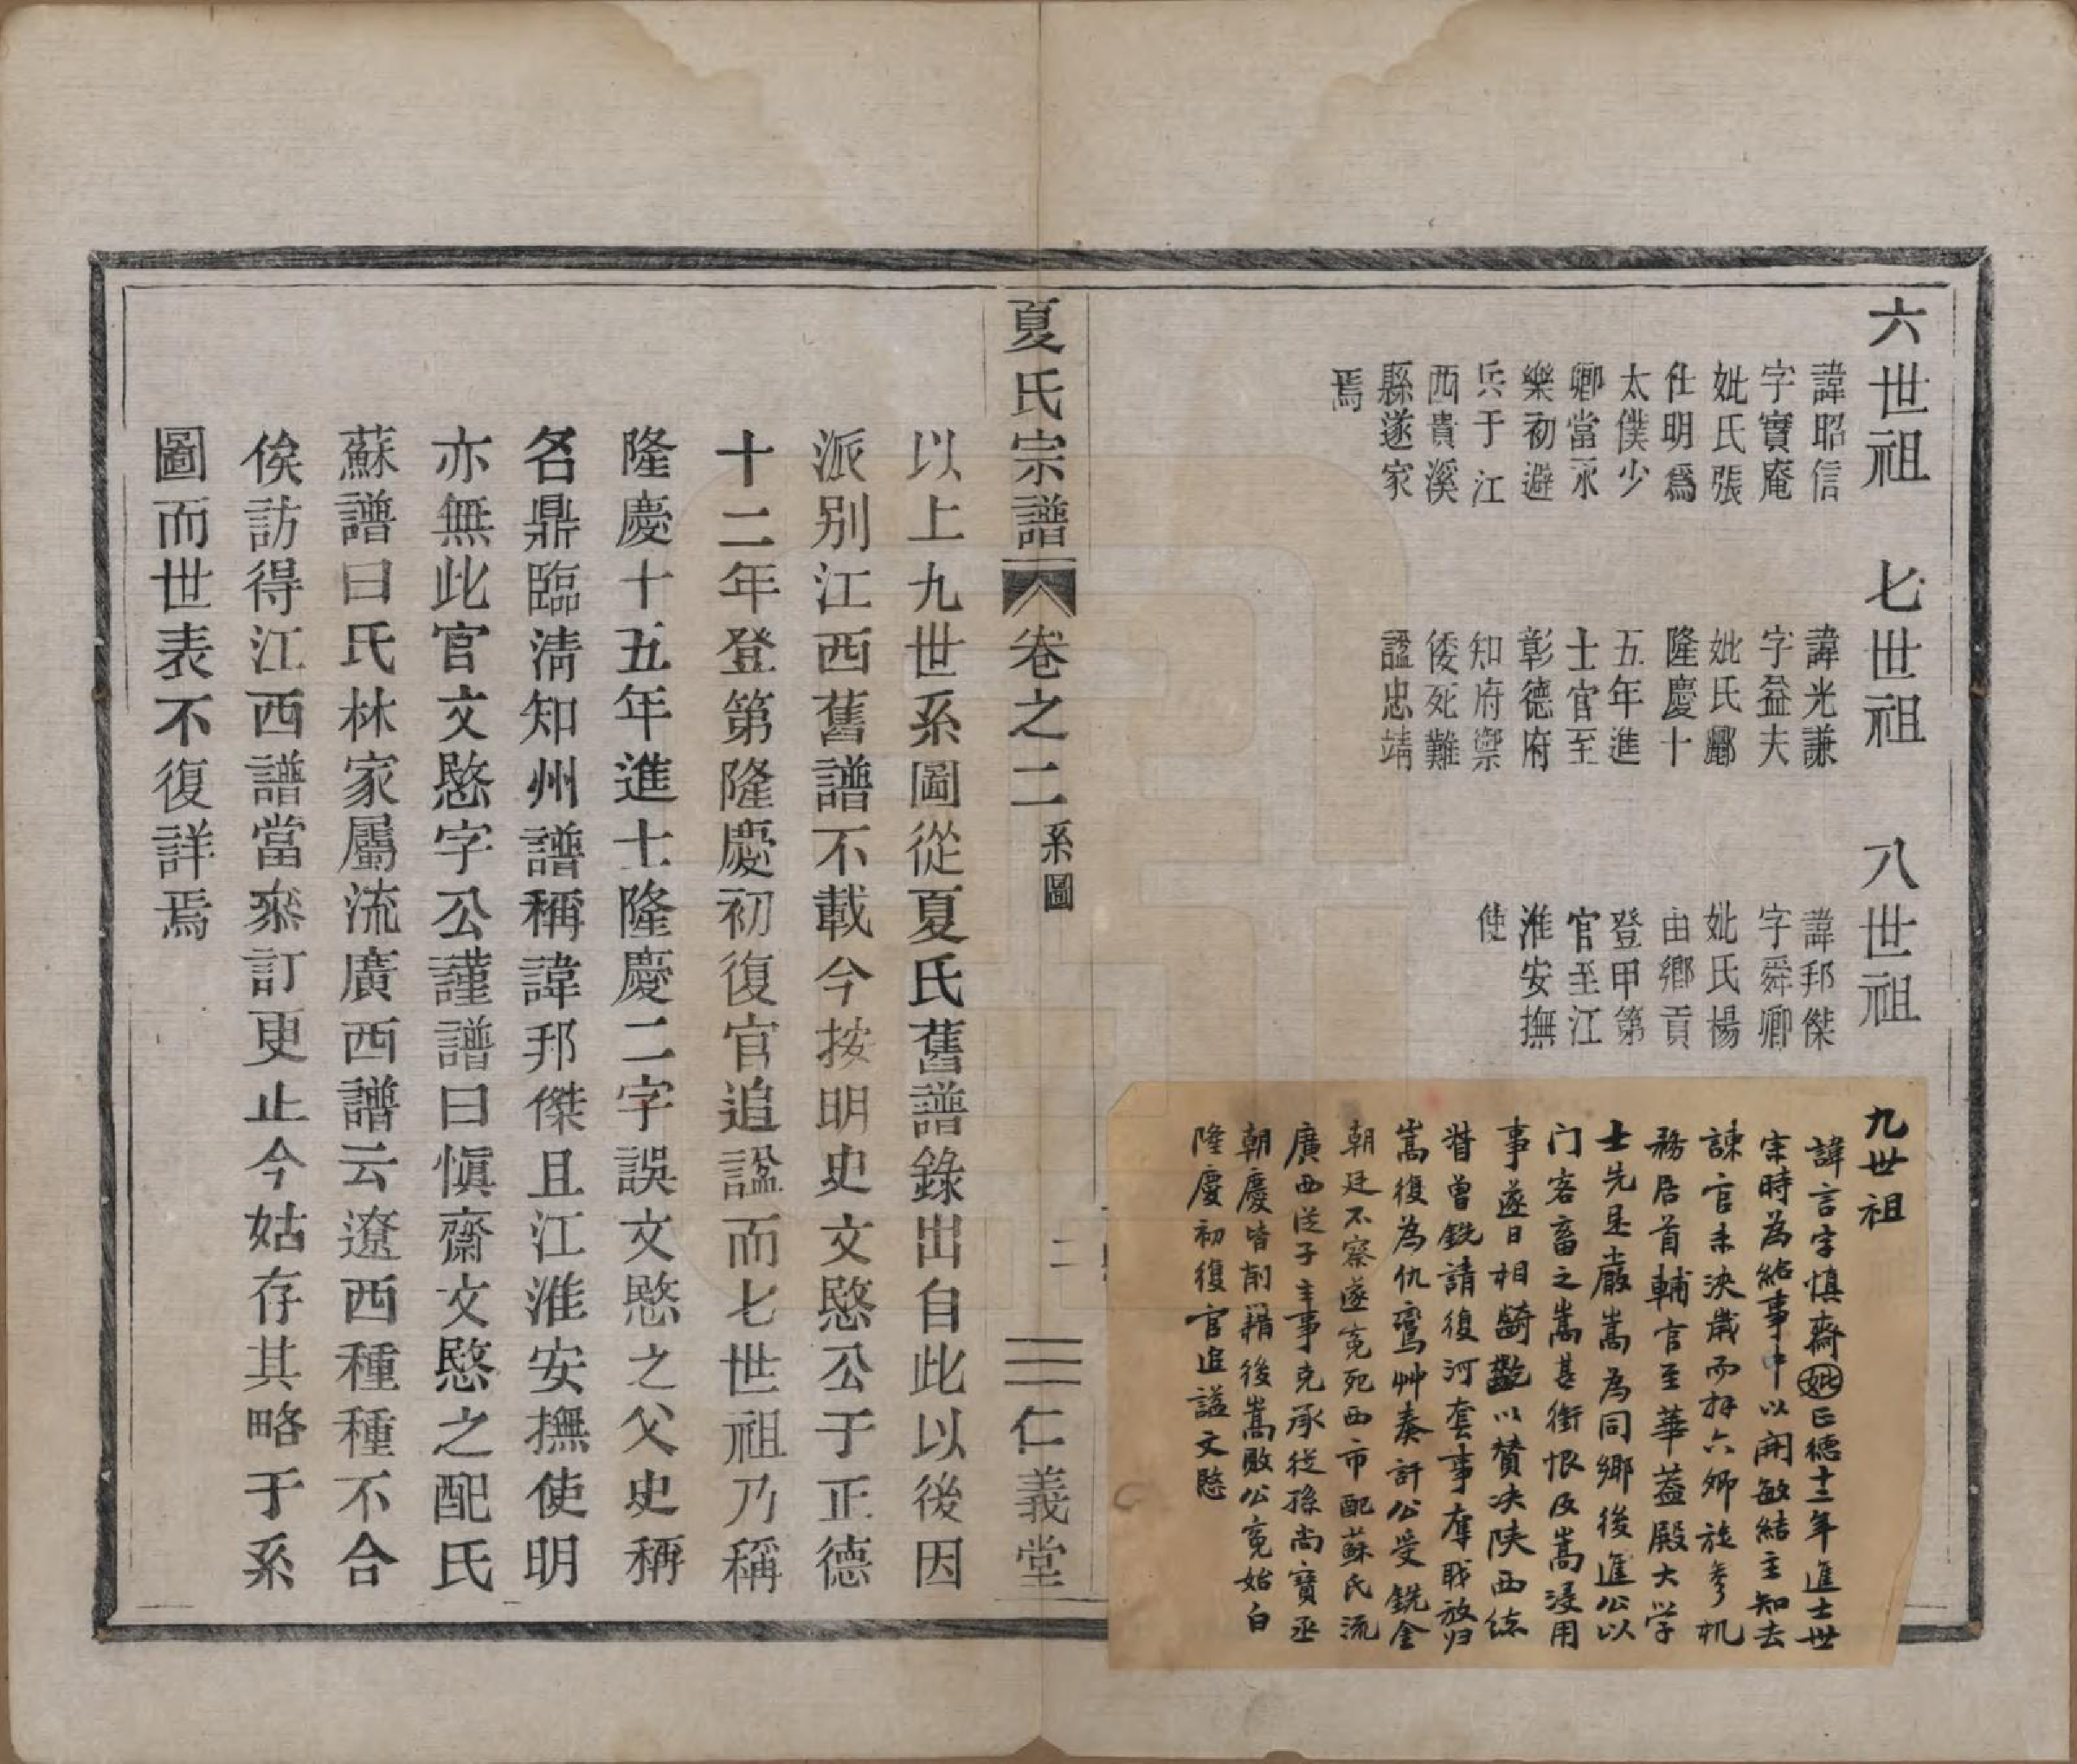 六世祖
諱昭信
字寶庵
妣氏張
仕明爲
太僕少
卿當永
樂初避
兵于江
西貴溪
縣遂家
焉
七世祖
諱光謙
字益夫
妣氏酈
隆慶十
五年進
士官至
彰德府
知府禦
倭死難
諡忠靖
八世祖
諱邦傑
字舜卿
妣氏楊
由鄉貢
登甲第
官至江
淮安撫
使
九世祖
諱言字慎齋妣正德十二年進士世
宗時為給事中以開敏結主知去
諫官未浹歲而拜六卿旋參机
務居首輔官至華蓋殿大学
士先是嚴嵩為同鄉後進公以
门客畜之嵩甚銜恨及嵩浸用
事遂日相齮齕以贊决陕西總
督曾銑請復河套事奪职放归
嵩復為仇鸞艸奏訐公受銑金
朝廷不察遂竟死西市配蘇氏流
廣西從子主事克承從孫尚寶丞
朝慶皆削籍後嵩敗公冤始白
隆慶初復官追謚文愍
夏氏宗譜 卷之二 系圖 二 仁義堂
以上九世系圖從夏氏舊譜錄出自此以後因
派别江西舊譜不載今按明史文愍公于正德
十二年登第隆慶初復官追諡而七世祖乃稱
隆慶十五年進士隆慶二字誤文愍之父史稱
名鼎臨淸知州譜稱諱邦傑且江淮安撫使明
亦無此官文愍字公謹譜曰愼齋文愍之配氏
蘇譜曰氏林家屬流廣西譜云遼西種種不合
俟訪得江西譜當叅訂更止今姑存其略于系
圖而世表不復詳焉